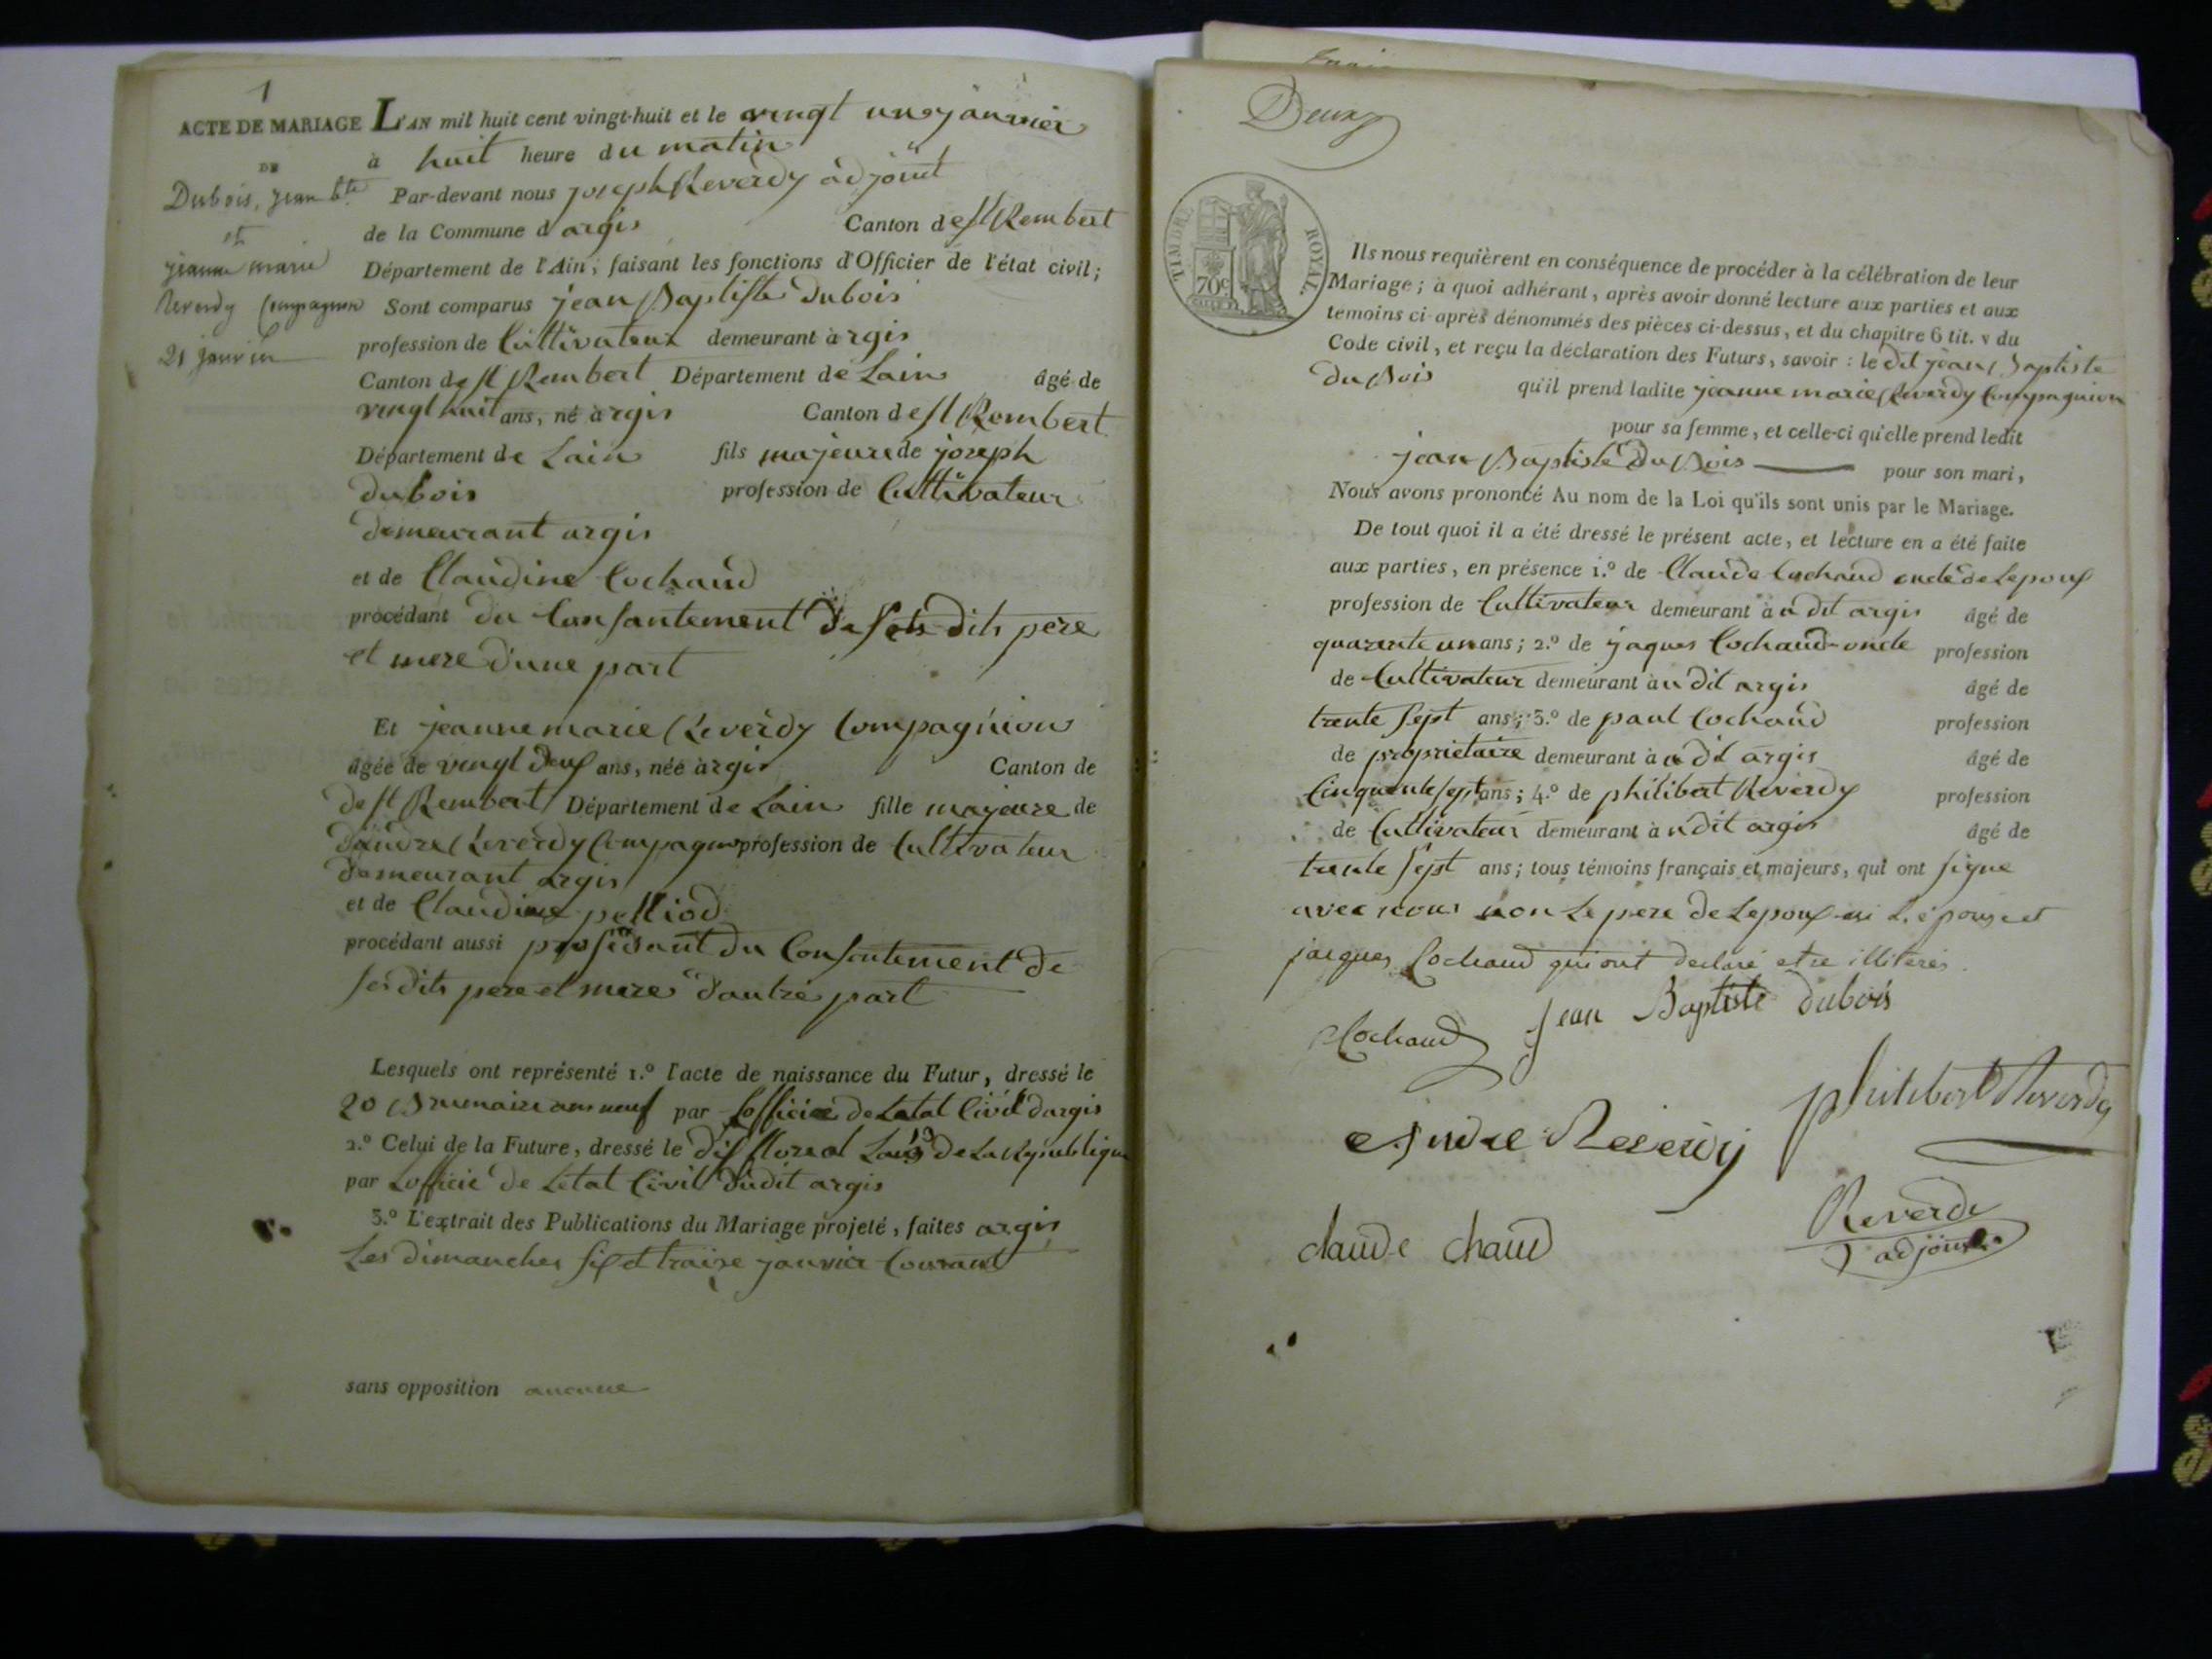 1
ACTE DE MARIAGE
DE
Dubois, jean bte
et
jeanne marie
Reverdy Compagnion
21 janvier
L'AN mil huit cent vingt-huit et le vingt un janvier
à huit heure du matin
Par-devant nous joseph Reverdy adjoint
de la Commune d argis Canton de st Rembert
Département de l'Ain, faisant les fonctions d'Officier de l'état civil;
Sont comparus jean Baptiste Dubois
profession de Cultivateur demeurant à rgis
Canton de st Rembert Département de Lain âgé de
vingt huit ans, né à rgis Canton de st Rembert
Département de Lain fils majeure de joseph
dubois profession de Cultivateur
demeurant argis
et de Claudine Cochaud
procédant du Consantement de ses dits pere
et mere d'une part
Et jeanne marie Reverdy Compagnion
âgée de vingt deux ans, née à rgis Canton de
de st Rembert Département de Lain fille majeure de
d'andre Reverdy Compagnion profession de Cultivateur
demeurant argis
et de Claudine pelliod
procédant aussi prosedant du Consentement de
ses dits pere et mere d'autre part
Lesquels ont représenté 1.º l'acte de naissance du Futur, dressé le
20 Brumaire an neuf par Lofficier de Letat Civil dargis
2.º Celui de la Future, dressé le dix floreal Lan 13 de La Republique
par Lofficie de Letat Civil dudit argis
3.º L'extrait des Publications du Mariage projeté, faites argis
Les dimanches six et traize janvier Courant
sans opposition aucune
Deux
TIMBRE ROYAL.
70c
Ils nous requièrent en conséquence de procéder à la célébration de leur
Mariage; à quoi adhérant, après avoir donné lecture aux parties et aux
témoins ci-après dénommés des pièces ci-dessus, et du chapitre 6 tit. v du
Code civil, et reçu la déclaration des Futurs, savoir : le dit jean Baptiste
du Bois qu'il prend ladite jeanne marie Reverdy Compagnion
pour sa femme, et celle-ci qu'elle prend ledit
jean Baptiste Du Bois pour son mari,
Nous avons prononcé Au nom de la Loi qu'ils sont unis par le Mariage.
De tout quoi il a été dressé le présent acte, et lecture en a été faite
aux parties, en présence 1.º de Claude Cochaud oncle de Lepoux
profession de Cultivateur demeurant à u dit argis âgé de
quarente un ans; 2.º de jaques Cochaud oncle profession
de Cultivateur demeurant à u dit argis âgé de
trente sept ans; 3.º de paul Cochaud profession
de proprietaire demeurant à u dit argis âgé de
Cinquente sept ans; 4.º de philibert Reverdy profession
de Cultivateur demeurant à u dit argis âgé de
trente sept ans; tous témoins français et majeurs, qui ont signe
avec nous non Le pere de Lepoux ni L'épouse et
jacques Cochaud qui ont declaré etre illiteres.
P Cochaud Jean Baptiste dubois
philibert Reverdy
Andre Reverdy
claude chaud
Reverdi
adjoint